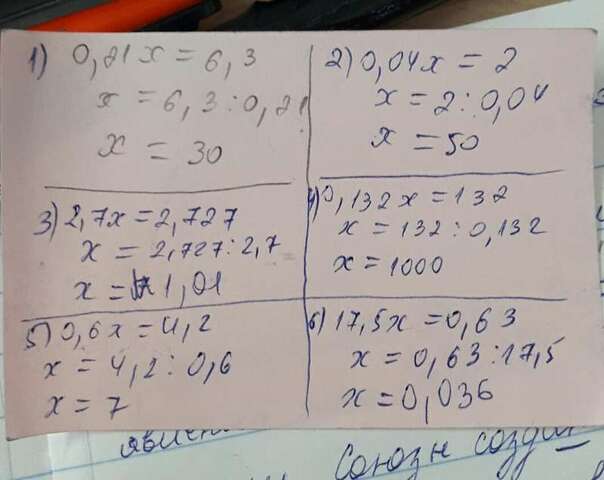 1) 0,21x = 6,3
x = 6,3 : 0,21
x = 30
2) 0,04x = 2
x = 2 : 0,04
x = 50
3) 2,7x = 2,727
x = 2,727 : 2,7
x = 1,01
4) 0,132x = 132
x = 132 : 0,132
x = 1000
5) 0,6x = 4,2
x = 4,2 : 0,6
x = 7
6) 17,5x = 0,63
x = 0,63 : 17,5
x = 0,036
Союзн создан